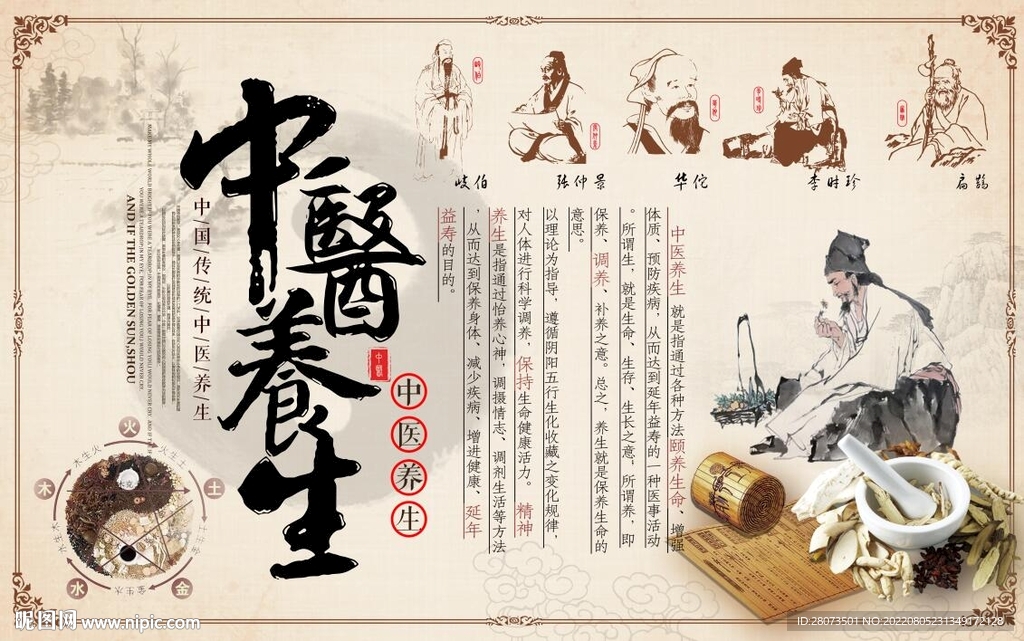 中醫養生
中國
中医养生
中/国/传/统/中/医/养/生
AND IF THE GOLDEN SUN,SHOU
岐伯
张仲景
华佗
李时珍
扁鹊
中医养生 就是指通过各种方法颐养生命、增强
体质、预防疾病，从而达到延年益寿的一种医事活动
。所谓生，就是生命、生存、生长之意；所谓养，即
保养、调养、补养之意。总之，养生就是保养生命的
意思。
以理论为指导，遵循阴阳五行生化收藏之变化规律，
对人体进行科学调养、保持生命健康活力。 精神
养生是指通过怡养心神，调摄情志、调剂生活等方法
，从而达到保养身体、减少疾病、增进健康、 延年
益寿的目的。
火
木
土
水
金
昵图网 www.nipic.com
ID:28073501 NO:20220805231349172128